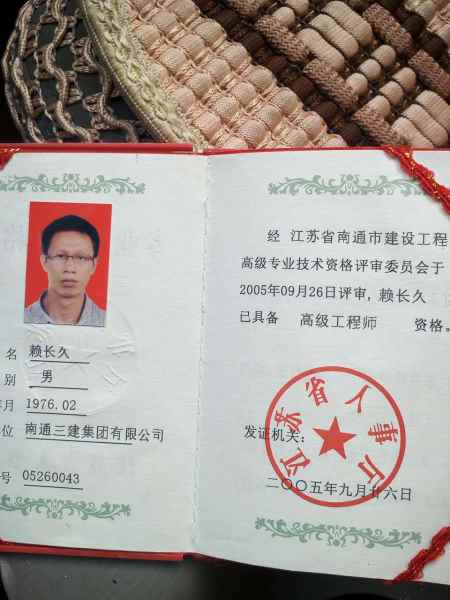 名 赖长久
别 男
年月 1976.02
位 南通三建集团有限公司
号 05260043
经 江苏省南通市建设工程
高级专业技术资格评审委员会于
2005年09月26日评审, 赖长久
已具备 高级工程师 资格。
江苏省人事厅
发证机关:
二〇〇五年九月廿六日